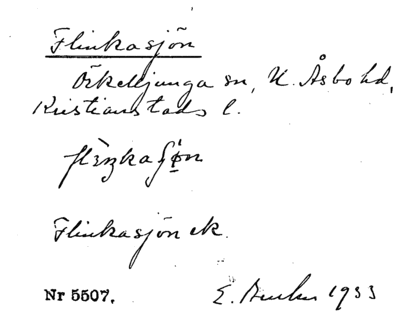 Flinkasjön
Örkelljunga sn, N. Åsbo hd,
Kristianstads l.
Flinkasjön ek.
Nr 5507.
E. 1933